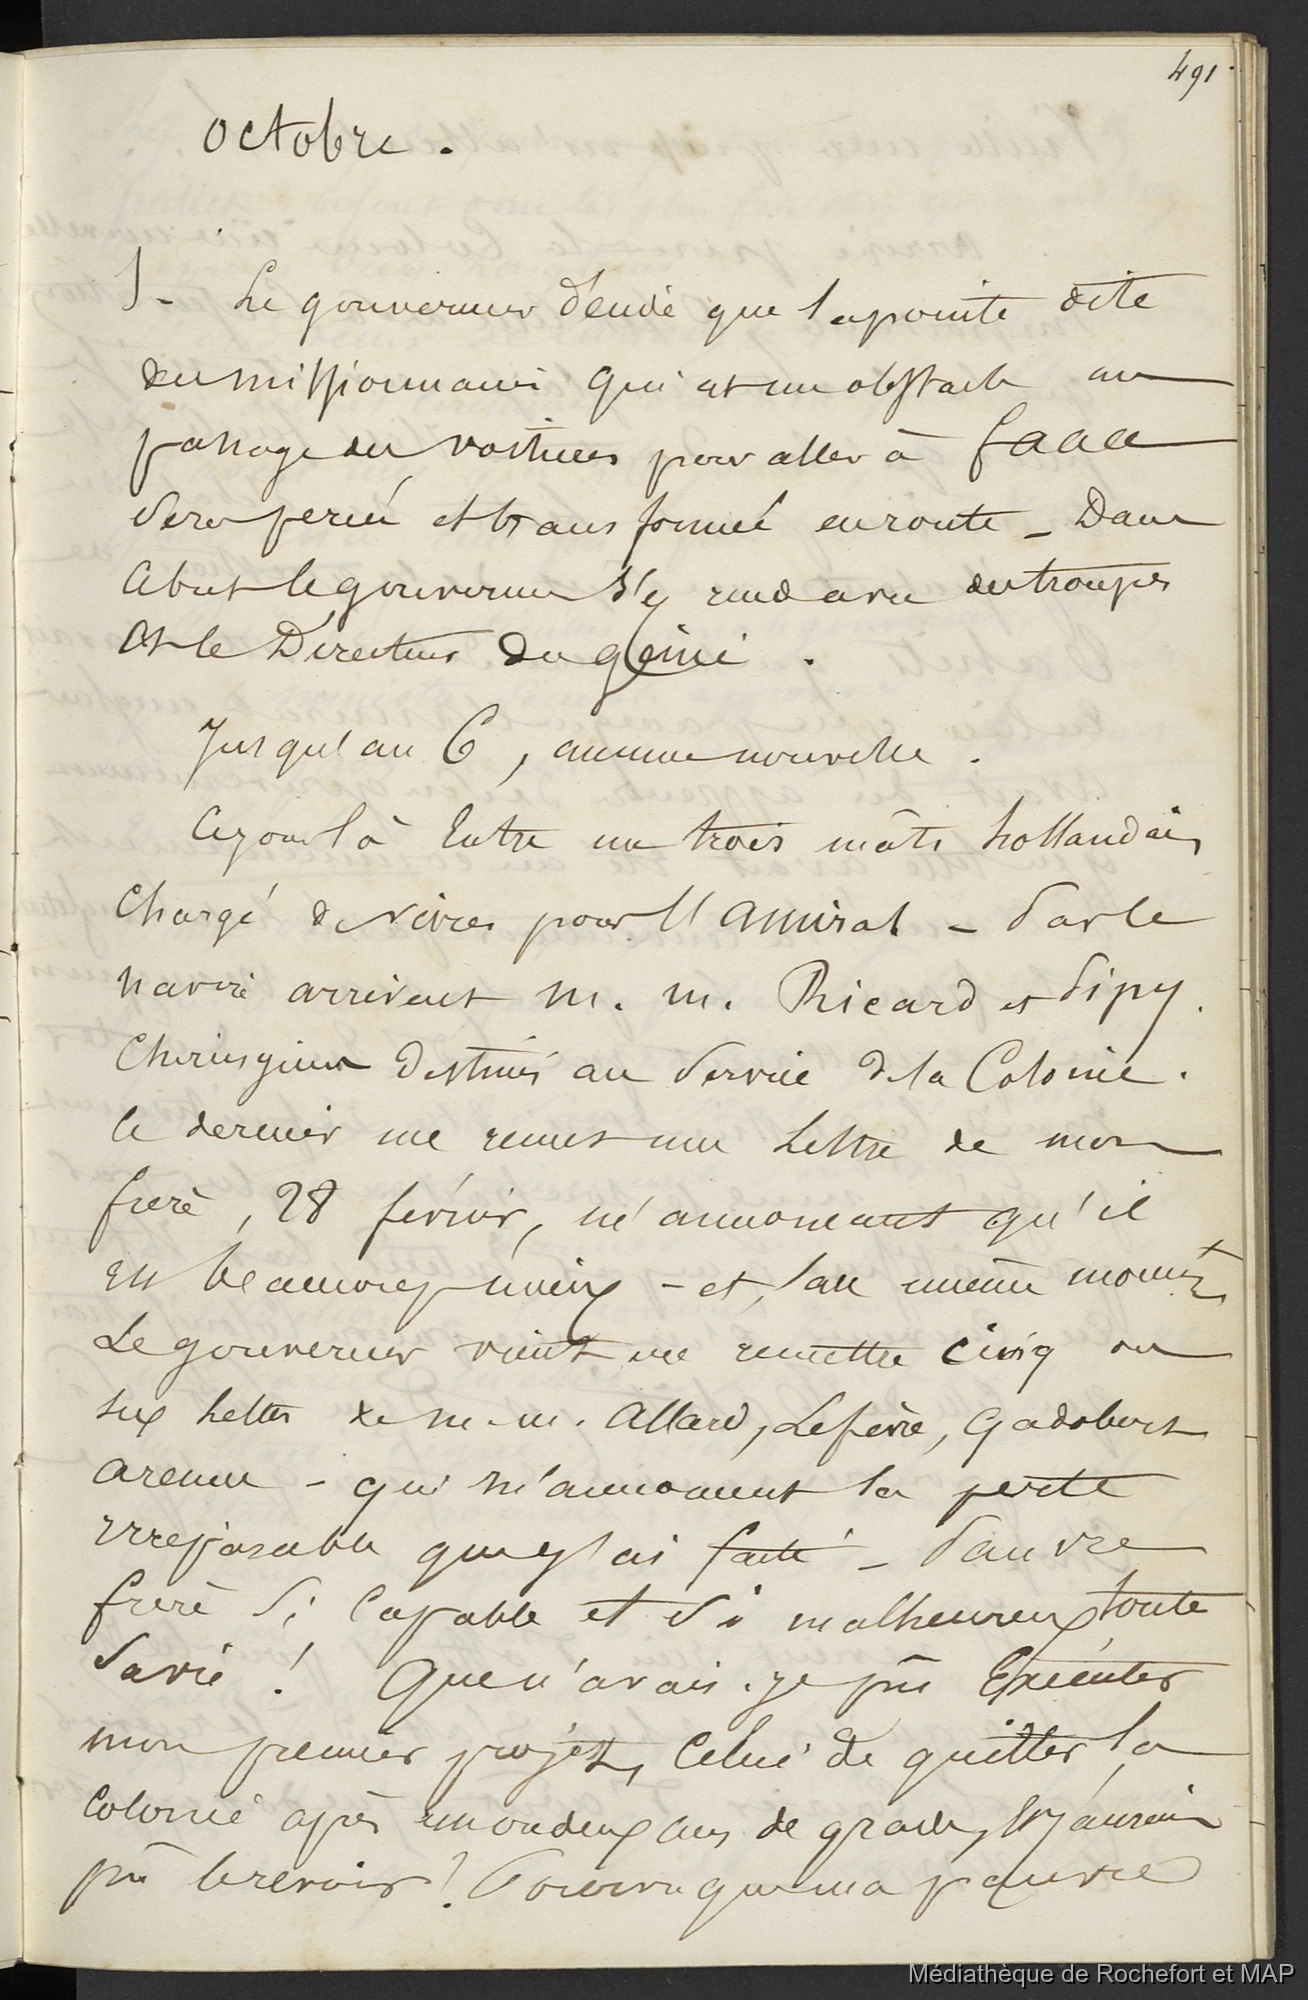 491.
octobre.
1- Le gouverneur décide que la pointe dite
des missionnaires qui est un obstacle au
passage des voitures pour aller à faaa
sera percée et transformée en route _ Dans
ce but le gouverneur s'y rend avec des troupes
et le Directeur du génie.
Jusqu'au 6, aucune nouvelle.
Ce jour là entre un trois mâts hollandais
chargé de vivres pour l'amiral - Par le
navire arrivent m. m. Ricard et
chirurgiens destinés au service de la Colonie.
Ce dernier me remet une lettre de mon
frère, 28 février, m'annonçant qu'il
est beaucoup mieux - et, au même moment
Le gouverneur vient me remettre cinq ou
six lettres de m. m. Allard, Lefèvre,
qui m'annoncent la perte
irréparable que j'ai faite - Pauvre
frère si capable et si malheureux toute
sa vie ! Que n'avais-je pu Exécuter
mon premier projet, celui de quitter la
colonie après mon deux ans de grade, j'aurais
pu le revoir ! Pourvu que ma pauvre
Médiathèque de Rochefort et MAP